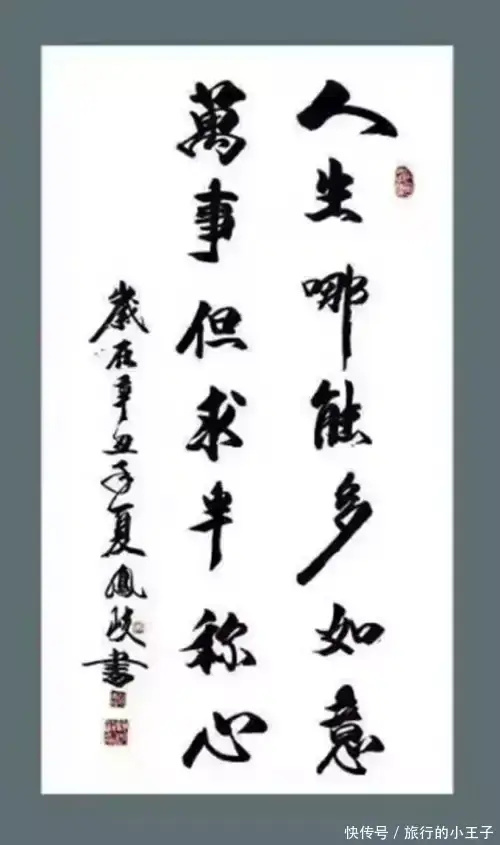 人生哪能多如意
萬事但求半称心
歲在辛丑年夏鳳岐書
快传号 / 旅行的小王子